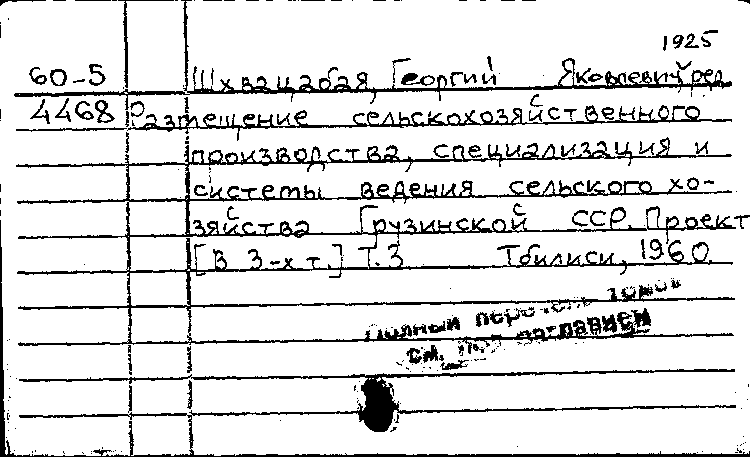 1925
60-5 Шхвацабая, Георгий Яковлевич, ред.
4468 Размещение сельскохозяйственного
производства, специализация и
системы ведения сельского хо-
зяйства Грузинской ССР. Проект
[В 3-х т.] Т.3 Тбилиси, 1960.
Полный перечень томов
см. под заглавием